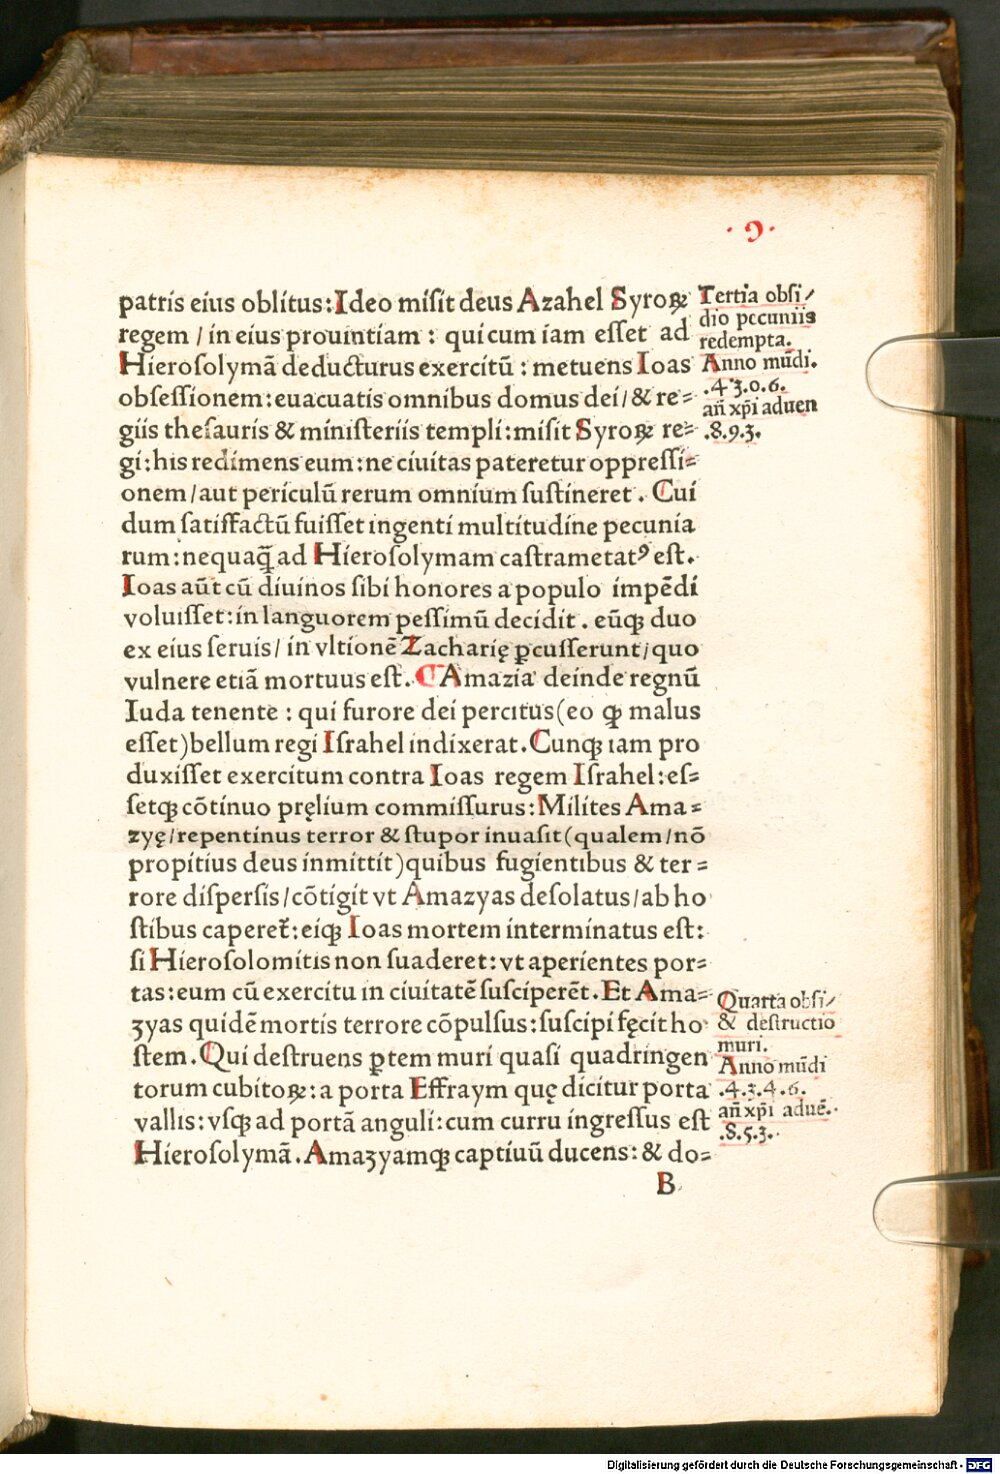 · 9 ·
patris eius oblitus: Ideo misit deus Azahel Syroꝝ
regem / in eius prouintiam : qui cum iam esset ad
Hierosolymā deducturus exercitū : metuens Ioas
obsessionem: euacuatis omnibus domus dei / & re=
giis thesauris & ministeriis templi: misit Syroꝝ re=
gi: his redimens eum: ne ciuitas pateretur oppressi=
onem / aut periculū rerum omnium sustineret . Cui
dum satisfactū fuisset ingenti multitudine pecunia
rum: nequaq̄ ad Hierosolymam castrametatꝰ est.
Ioas aūt cū diuinos sibi honores a populo impēdi
voluisset: in languorem pessimū decidit . eūqꝫ duo
ex eius seruis / in vltionē Zacharię ꝑcusserunt / quo
vulnere etiā mortuus est. ¶ Amazia deinde regnū
Iuda tenente : qui furore dei percitus (eo ꝙ malus
esset) bellum regi Israhel indixerat. Cunqꝫ iam pro
duxisset exercitum contra Ioas regem Israhel: es=
setqꝫ cōtinuo pręlium commissurus: Milites Ama=
zyę / repentinus terror & stupor inuasit (qualem / nō
propitius deus inmittit) quibus fugientibus & ter=
rore dispersis / cōtigit vt Amazyas desolatus / ab ho
stibus caperet᷑: eiqꝫ Ioas mortem interminatus est:
si Hierosolomitis non suaderet: vt aperientes por=
tas: eum cū exercitu in ciuitatē susciperēt. Et Ama=
zyas quidē mortis terrore cōpulsus: suscipi fęcit ho
stem. Qui destruens ꝑtem muri quasi quadringen
torum cubitoꝝ: a porta Effraym quę dicitur porta
vallis: vsqꝫ ad portā anguli: cum curru ingressus est
Hierosolymā. Amazyamqꝫ captiuū ducens: & do=
B
Tertia obsi/
dio pecuniis
redempta.
Anno mūdi.
.4.3.0.6.
añ xp̄i aduen
.8.9.3.
Quarta obsi/
& destructio
muri.
Anno mūdi
.4.3.4.6.
añ xp̄i aduē.
.8.5.3.
Digitalisierung gefördert durch die Deutsche Forschungsgemeinschaft - DFG